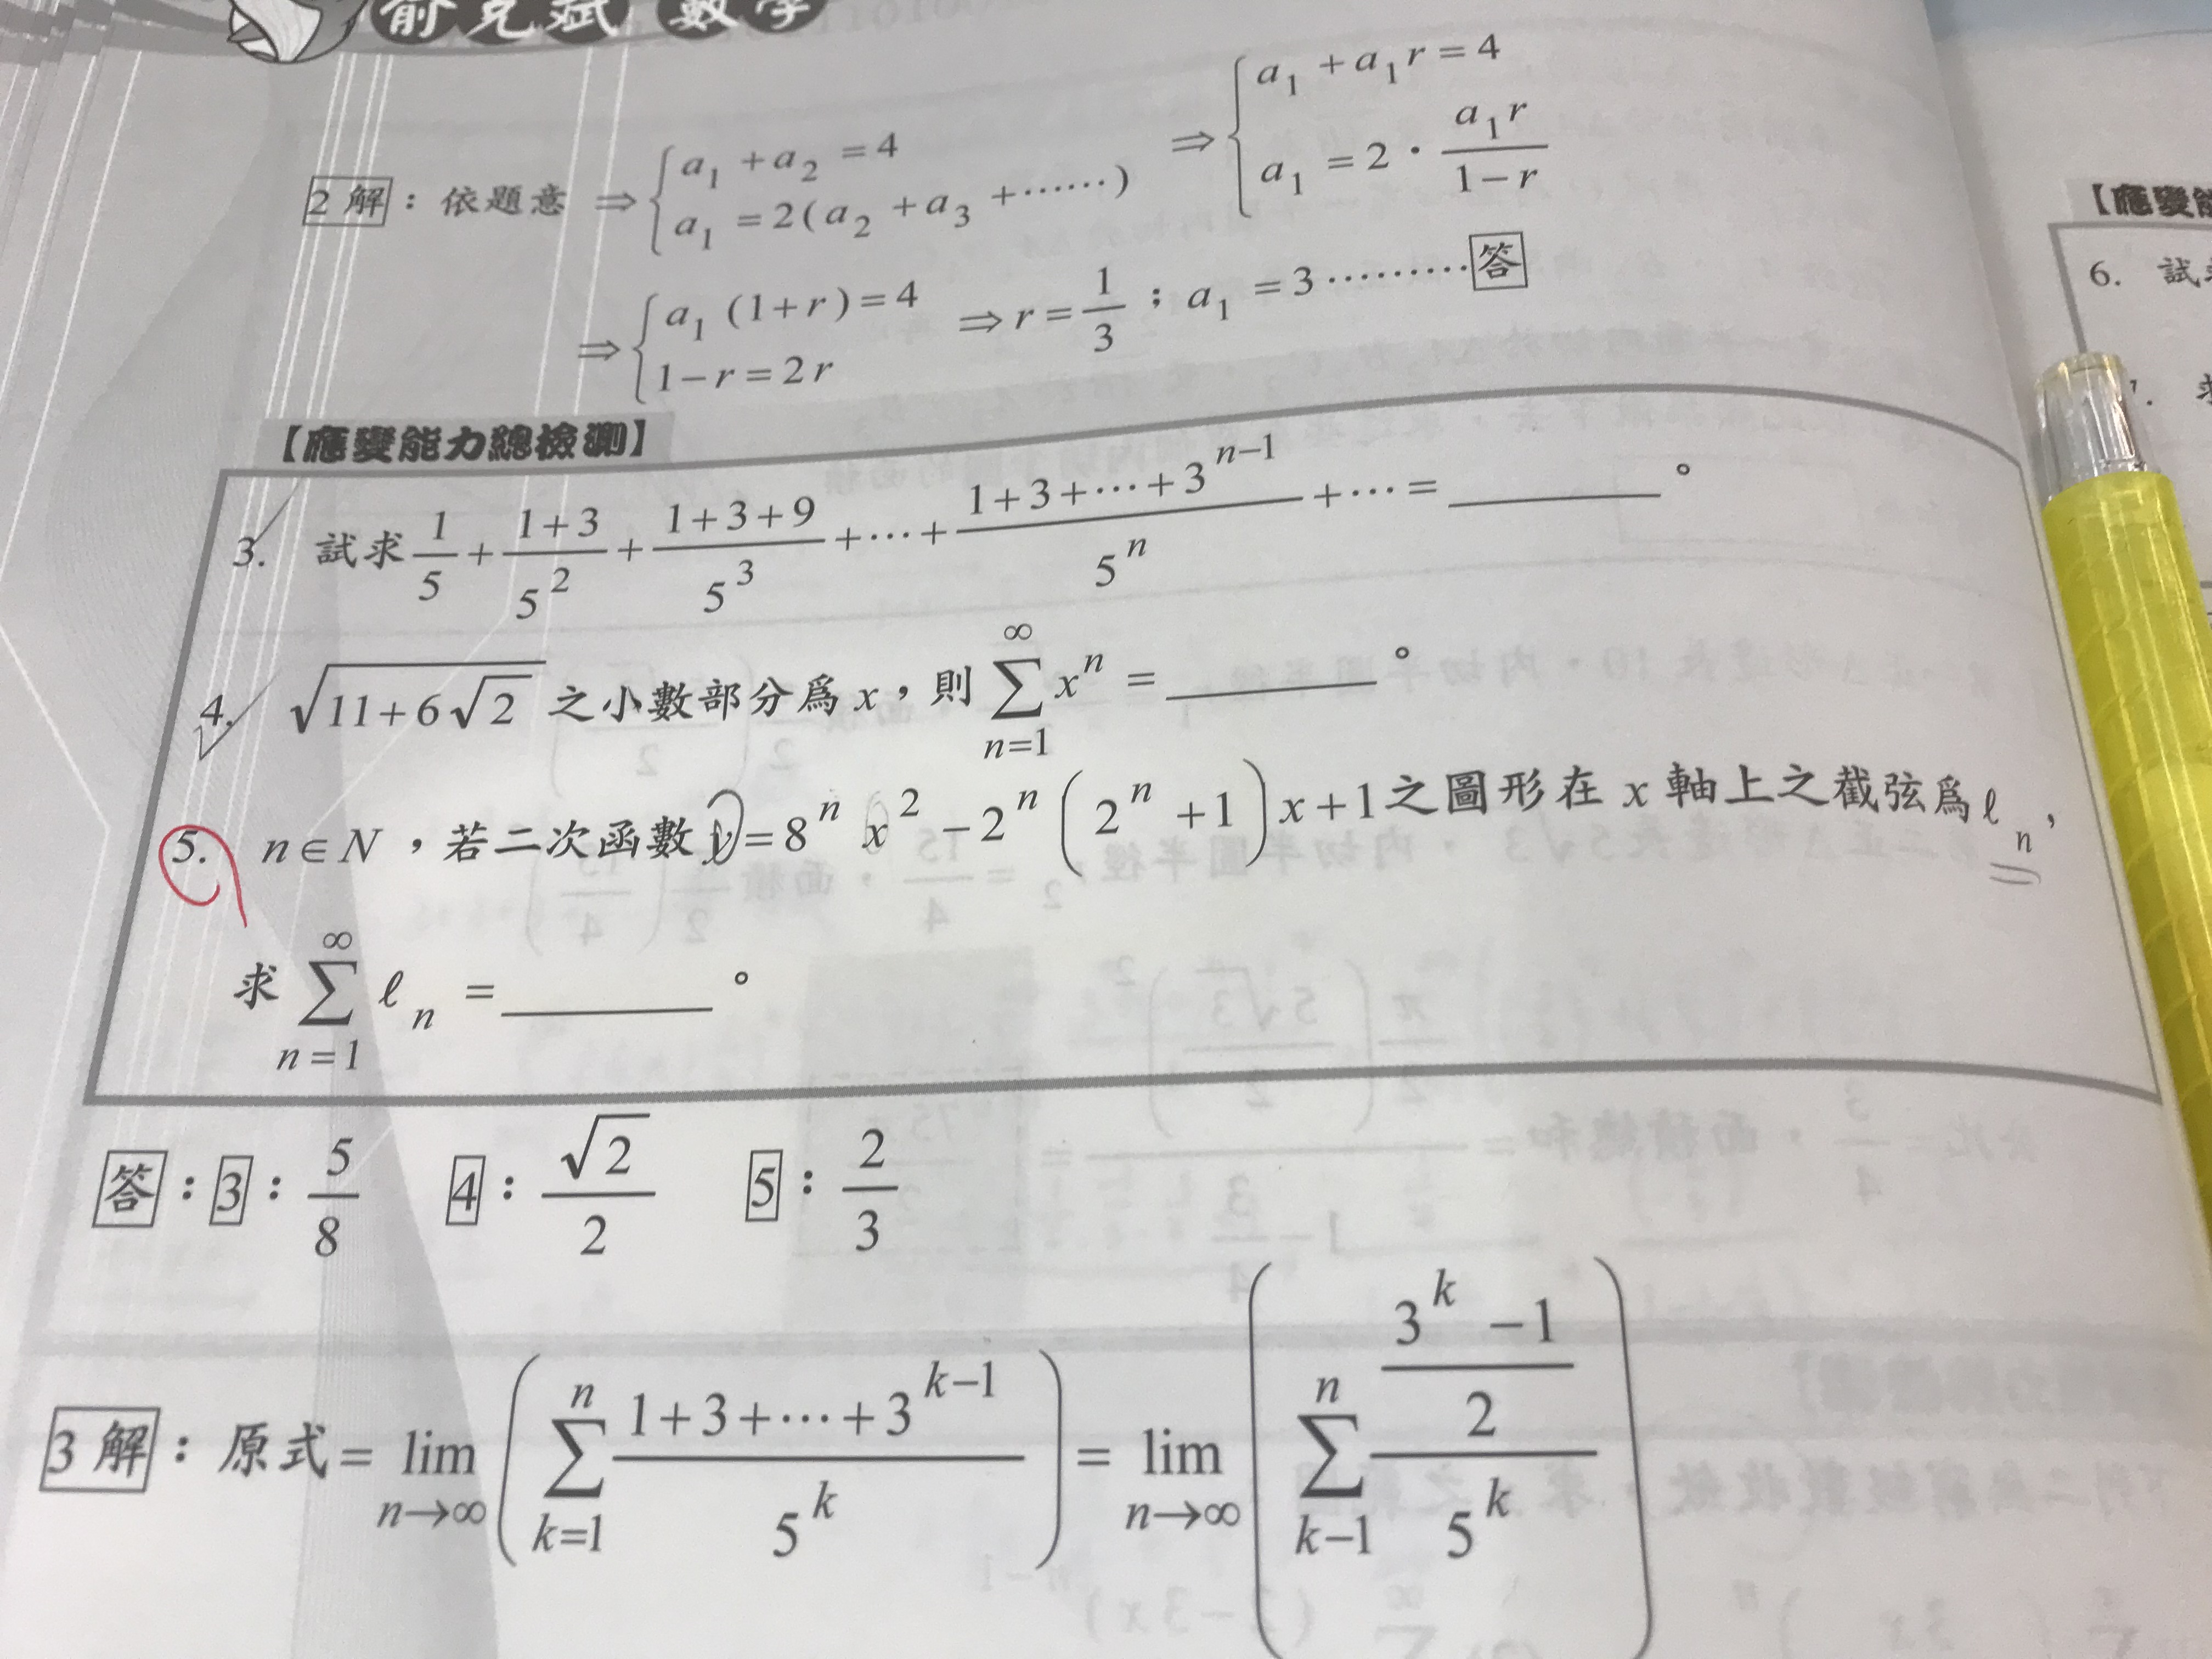 俞克斌 數學
2 解：依題意 ⇒ { a₁ + a₂ = 4 ; a₁ = 2(a₂ + a₃ + ⋯⋯) ⇒ { a₁ + a₁r = 4 ; a₁ = 2 · a₁r/(1−r)
⇒ { a₁(1+r) = 4 ; 1−r = 2r ⇒ r = 1/3 ; a₁ = 3 ⋯⋯⋯ 答
【應變能力總檢測】
3. 試求 1/5 + (1+3)/5² + (1+3+9)/5³ + ⋯ + (1+3+⋯+3ⁿ⁻¹)/5ⁿ + ⋯ = ______ 。
4. √(11+6√2) 之小數部分為 x，則 ∑_{n=1}^{∞} xⁿ = ______ 。
5. n∈N，若二次函數 y = 8ⁿ x² − 2ⁿ (2ⁿ + 1) x + 1 之圖形在 x 軸上之截弦為 ℓₙ，
求 ∑_{n=1}^{∞} ℓₙ = ______ 。
答：3：5/8 4：√2/2 5：2/3
3 解：原式 = lim_{n→∞} ( ∑_{k=1}^{n} (1+3+⋯+3^{k−1})/5^k ) = lim_{n→∞} ( ∑_{k−1}^{n} ((3^k −1)/2)/5^k )
6. 試